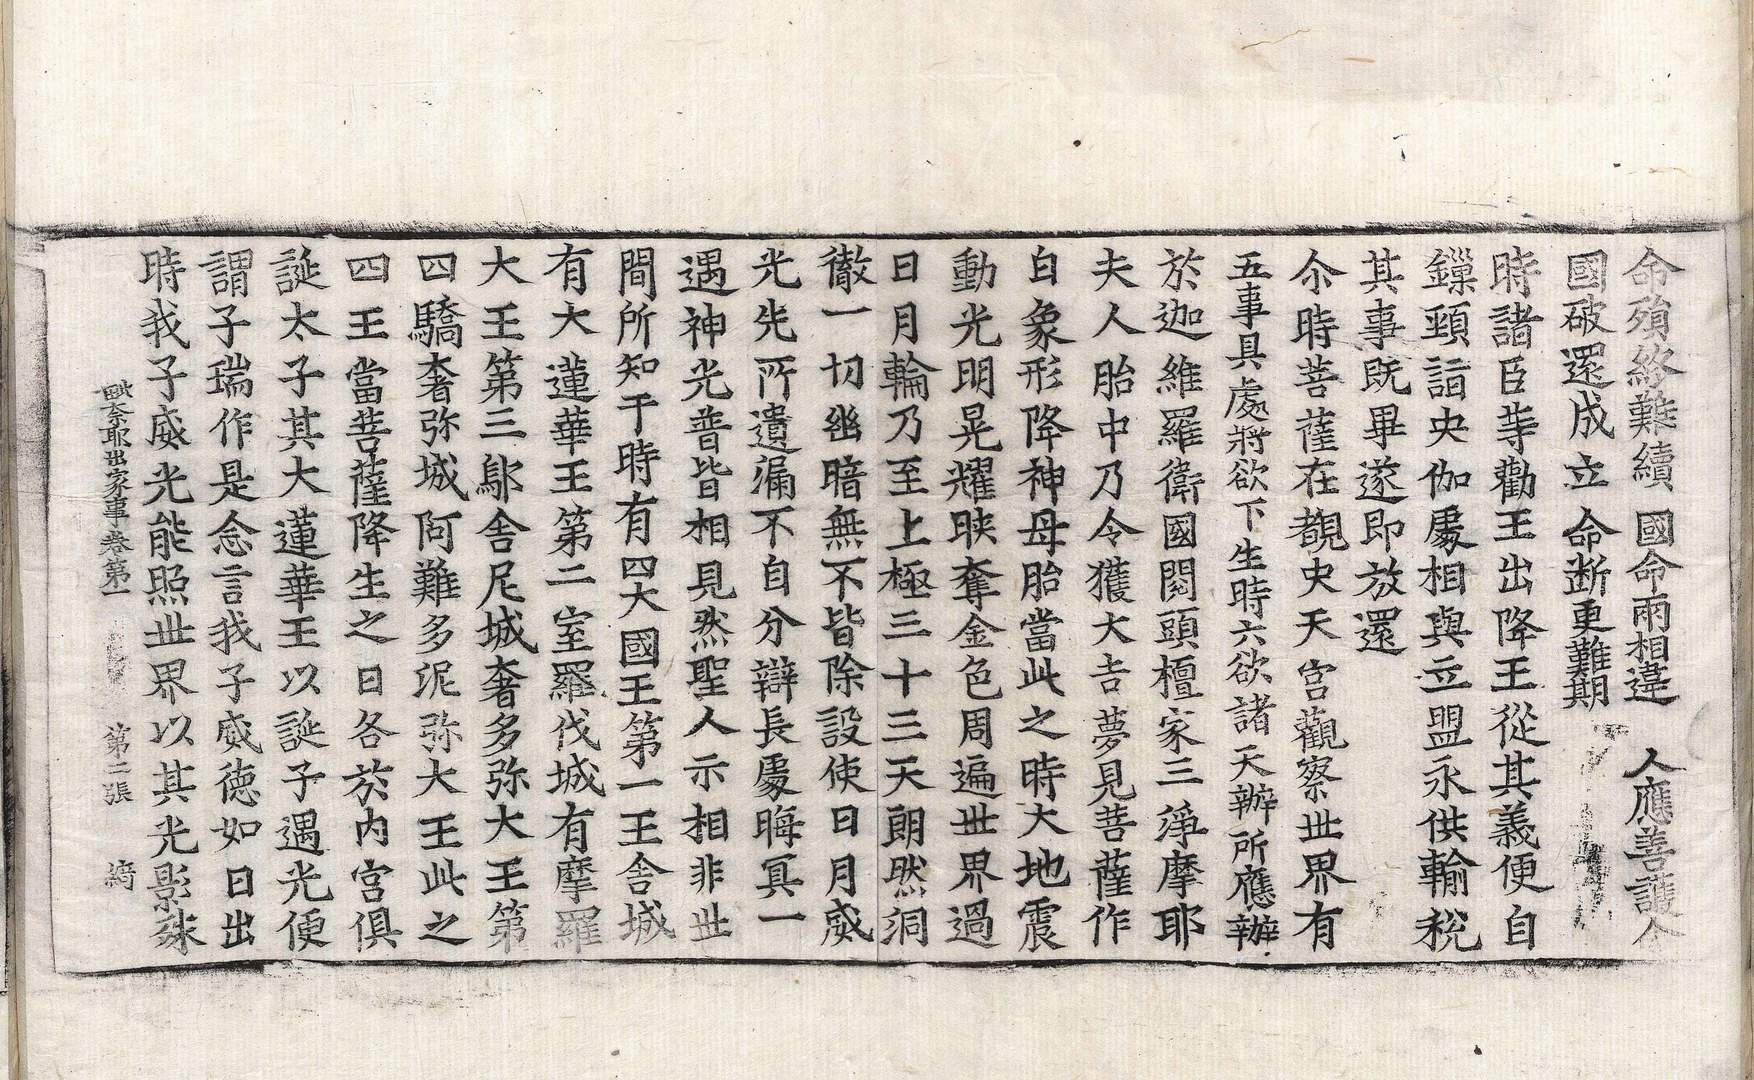 命殞終難續 國命兩相違 人應善護命
國破還成立 命斷更難期
時諸臣等勸王出降王從其義便自
鏁頸詣央伽處相與立盟永供輸稅
其事既畢遂即放還
尒時菩薩在覩史天宮觀察世界有
五事具處將欲下生時六欲諸天辦所應辦
於迦維羅衛國閱頭檀家三淨摩耶
夫人胎中乃令獲大吉夢見菩薩作
白象形降神母胎當此之時大地震
動光明晃耀映奪金色周遍世界過
日月輪乃至上極三十三天朗然洞
徹一切幽暗無不皆除設使日月威
光先所遺漏不自分辯長處晦冥一
遇神光普皆相見然聖人示相非世
間所知于時有四大國王第一王舍城
有大蓮華王第二室羅伐城有摩羅
大王第三鄔舍尼城奢多弥大王第
四驕奢弥城阿難多泥弥大王此之
四王當菩薩降生之日各於內宮俱
誕太子其大蓮華王以誕子遇光便
謂子瑞作是念言我子威德如日出
時我子威光能照世界以其光影殊
毗奈耶出家事卷第一 第二張 綺